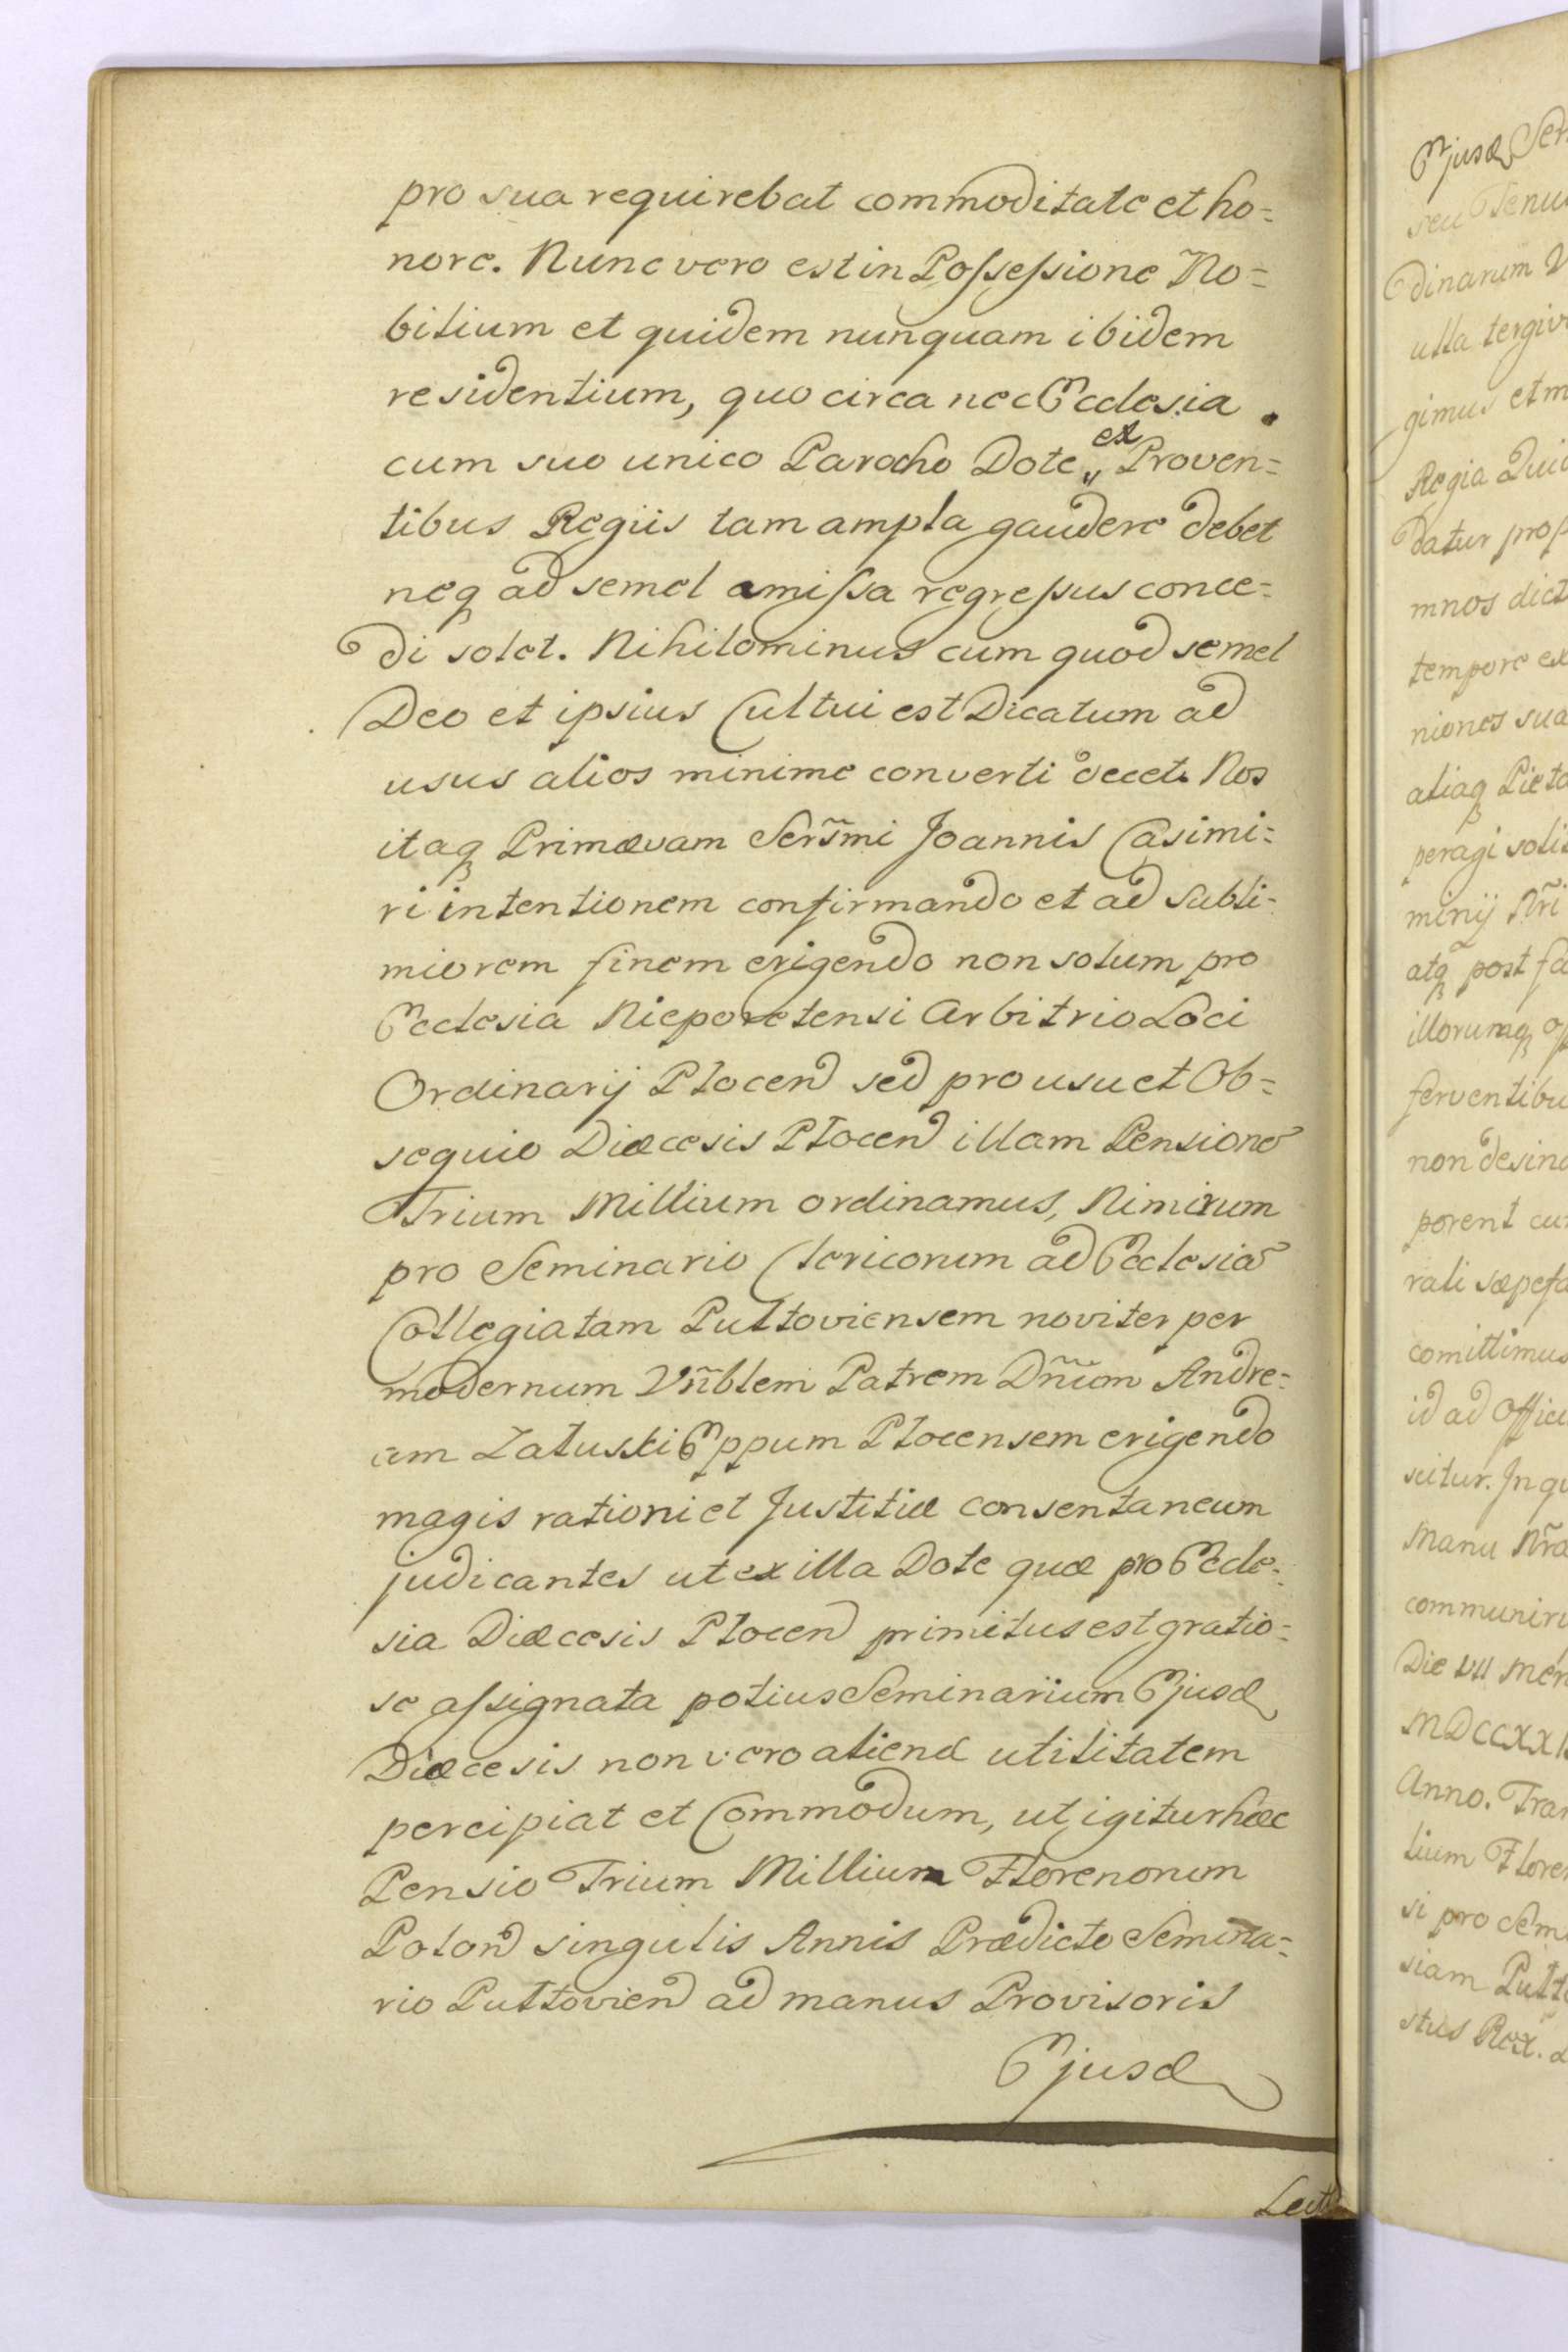 pro sua requirebat commoditate et ho=
nore. Nunc vero est in Possessione No=
bilium et quidem nunquam ibidem
residentium, quo circa nec Ecclesia
cum suo unico Parocho Dote ex Proven=
tibus Regiis tam ampla gaudere debet
neq ad semel amissa regressus conce=
di solet. Nihilominus cum quod semel
Deo et ipsius Cultui est Dicatum ad
usus alios minime converti decet. Nos
itaq Primævam Serm̃i Joannis Casimi=
ri intentionem confirmando et ad Subli=
miorem finem erigendo non solum pro
Ecclesia Nieporetensi Arbitrio Loci
Ordinarij Plocen sed pro usu et Ob=
sequio Diæcesis Plocen illam Pensione
Trium Millium ordinamus, Nimirum
pro Seminario Clericorum ad Ecclesiã
Collegiatam Pultoviensem noviter per
modernum Vñblem Patrem Dñum Andre=
am Zaluski Eppum Plocensem erigendo
magis rationi et Justitiæ consentaneum
judicantes ut ex illa Dote quæ pro Eccle=
sia Diæcesis Plocen primitus est gratio=
se assignata potius Seminarium Ejusd
Diæcesis non vero alienæ utilitatem
percipiat et Commodum, ut igitur hæc
Pensio Trium Millium Florenorum
Polon singulis Annis Prædicto Semina=
rio Pultovien ad manus Provisoris
Ejusd
Ejusd
seu
dinarum
ulla
gimus et
Regia
datur
mnos
tempore ex
niones sua
aliaq
peragi
minij Nr̃i
atq post
illorumq
ferventibu
non
porent
rati
comittimus
id ad
scitur. In
Manu Nr̃a
communiri
Die VII
Anno.
tium
si pro
siam
stus Rex.